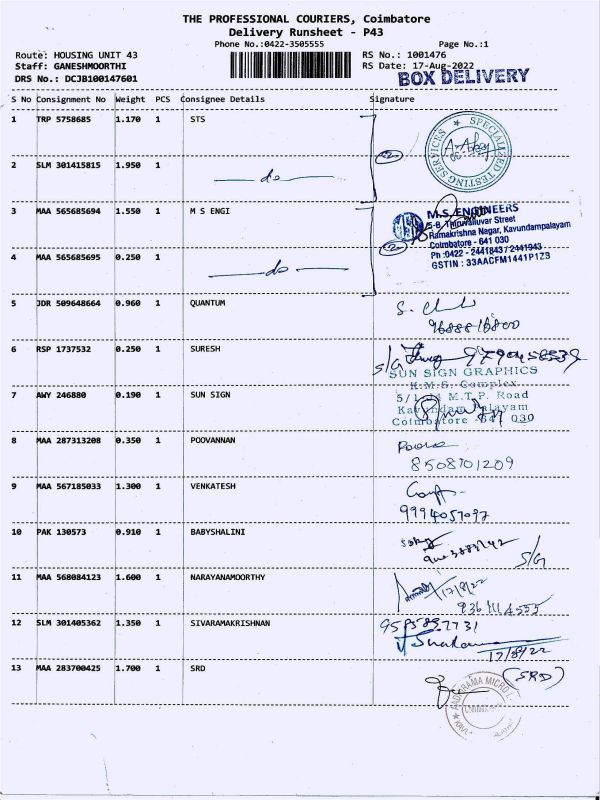 THE PROFESSIONAL COURIERS, Coimbatore
Delivery Runsheet - P43
Phone No.:0422-3505555 Page No.:1
Route: HOUSING UNIT 43 RS No.: 1001476
Staff: GANESHMOORTHI RS Date: 17-Aug-2022
DRS No.: DCJB100147601 BOX DELIVERY
S No Consignment No Weight PCS Consignee Details Signature
1 TRP 5758685 1.170 1 STS
SPECIALIZED TESTING SERVICES
2 SLM 301415815 1.950 1 do
3 MAA 565685694 1.550 1 M S ENGI
M.S. ENGINEERS
5-B, Thiruvalluvar Street
Ramakrishna Nagar, Kavundampalayam
Coimbatore - 641 030
Ph :0422 - 2441843 / 2441943
GSTIN : 33AACFM1441P1Z3
4 MAA 565685695 0.250 1 do
5 JDR 509648664 0.960 1 QUANTUM
6 RSP 1737532 0.250 1 SURESH
S/G
SUN SIGN GRAPHICS
K.M.S. Complex
7 AWY 246880 0.190 1 SUN SIGN
M.T.P. Road
Coimbatore - 641 030
8 MAA 287313208 0.350 1 POOVANNAN
8508701209
9 MAA 567185033 1.300 1 VENKATESH
9994057097
10 PAK 130573 0.910 1 BABYSHALINI
S/G
11 MAA 568084123 1.600 1 NARAYANAMOORTHY
17/8/22
12 SLM 301405362 1.350 1 SIVARAMAKRISHNAN
17/8/22
13 MAA 283700425 1.700 1 SRD
(SRD)